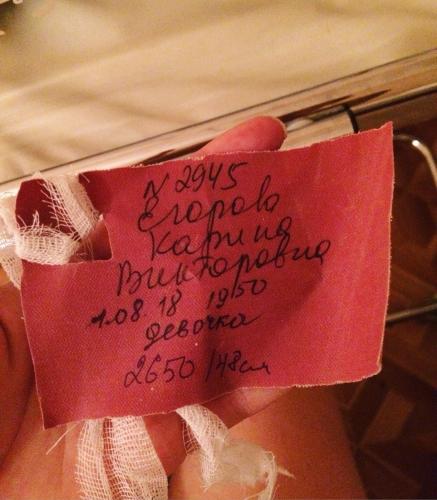 N 2945
Егорова
Карина
Викторовна
1.08.18 19 50
девочка
2650/48см